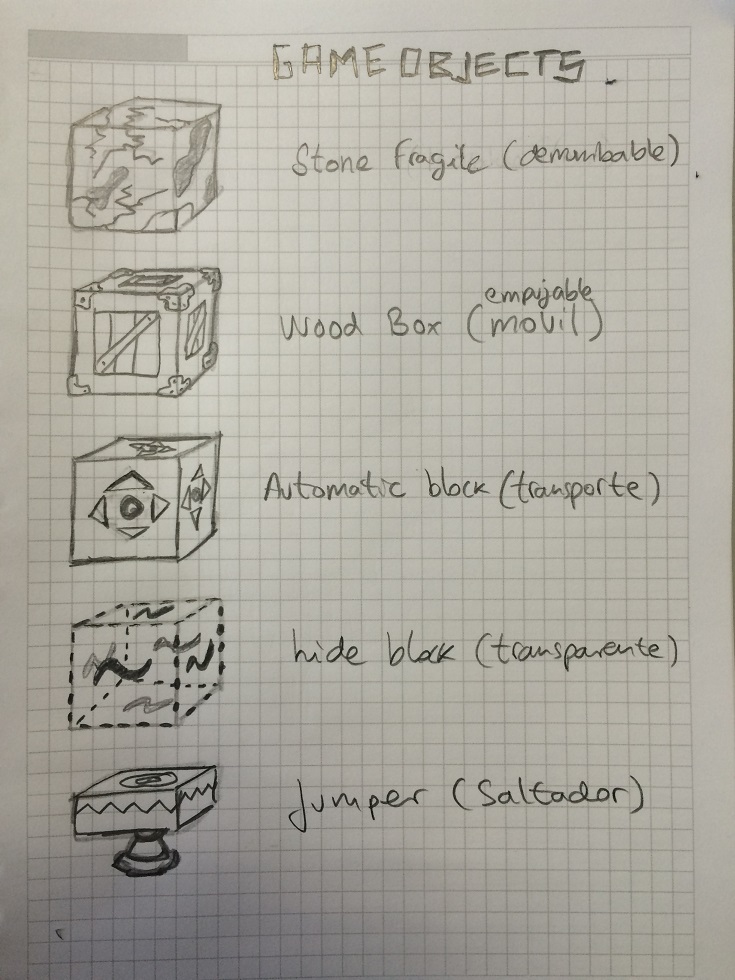 GAME OBJECTS.
Stone fragile (demumbable)
empujable
Wood Box (movil)
Automatic block (transporte)
hide block (transparente)
Jumper (Saltador)